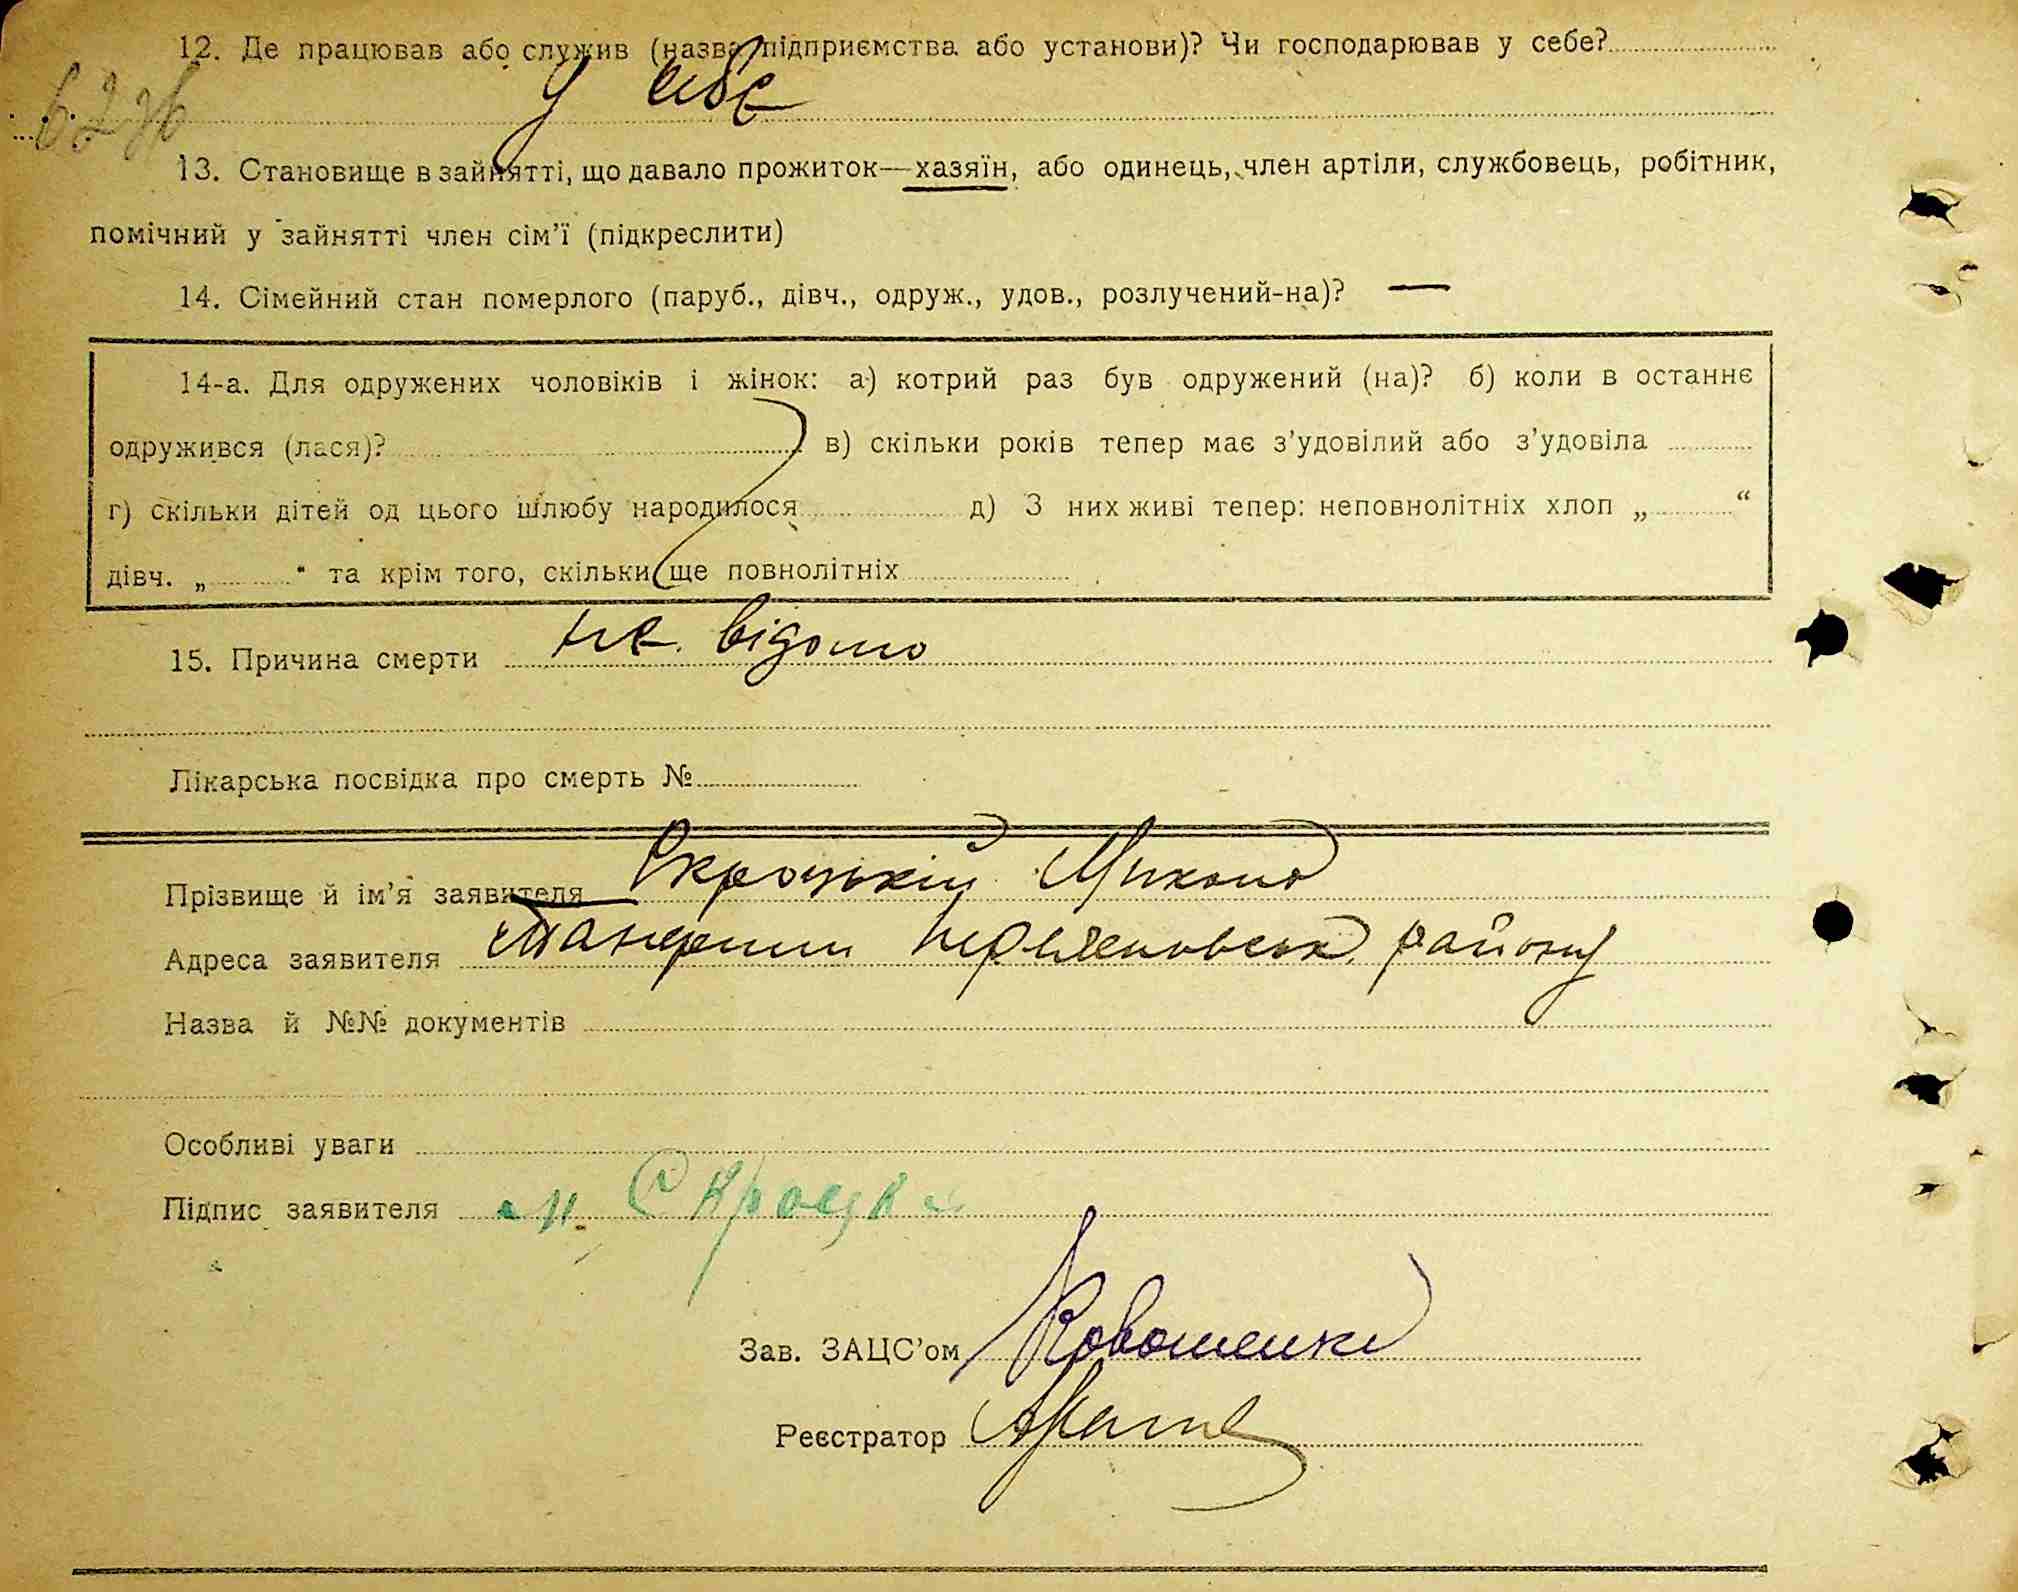 12. Де працював або служив (назва підприємства або установи)? Чи господарював у себе?
у себе
13. Становище в зайнятті, що давало прожиток—хазяїн, або одинець, член артіли, службовець, робітник,
помічний у зайнятті член сім’ї (підкреслити)
14. Сімейний стан померлого (паруб., дівч., одруж., удов., розлучений-на)? —
14-а. Для одружених чоловіків і жінок: а) котрий раз був одружений (на)? б) коли в останнє
одружився (лася)? в) скільки років тепер має з’удовілий або з’удовіла
г) скільки дітей од цього шлюбу народилося д) З них живі тепер: неповнолітніх хлоп „ “
дівч. „ “ та крім того, скільки ще повнолітніх
15. Причина смерти не відомо
Лікарська посвідка про смерть №
Прізвище й ім’я заявителя Скроцький Микола
Адреса заявителя району
Назва й №№ документів
Особливі уваги
Підпис заявителя м. Скроцки
Зав. ЗАЦС’ом
Реєстратор